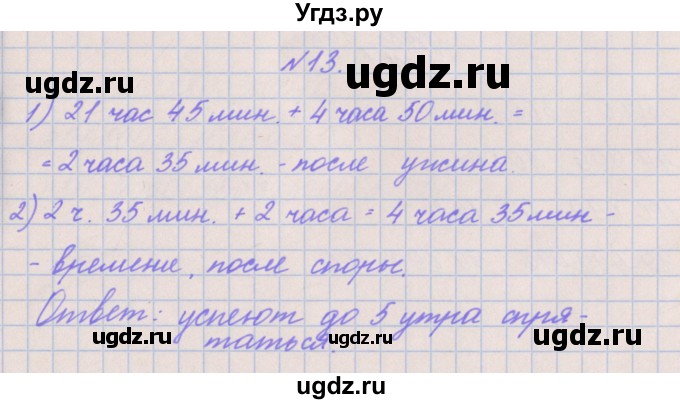 Угдз.ру
№13.
ugdz.ru
ugdz.ru
ugdz.ru
1) 21 час 45 мин. + 4 часа 50 мин. =
= 2 часа 35 мин. - после ужина.
ugdz.ru
2) 2 ч. 35 мин. + 2 часа = 4 часа 35 мин -
- времени, после споры.
Ответ: успеют до 5 утра спря-
ugdz.ru
ugdz.ru
таться.
ugdz.ru
ugdz.ru